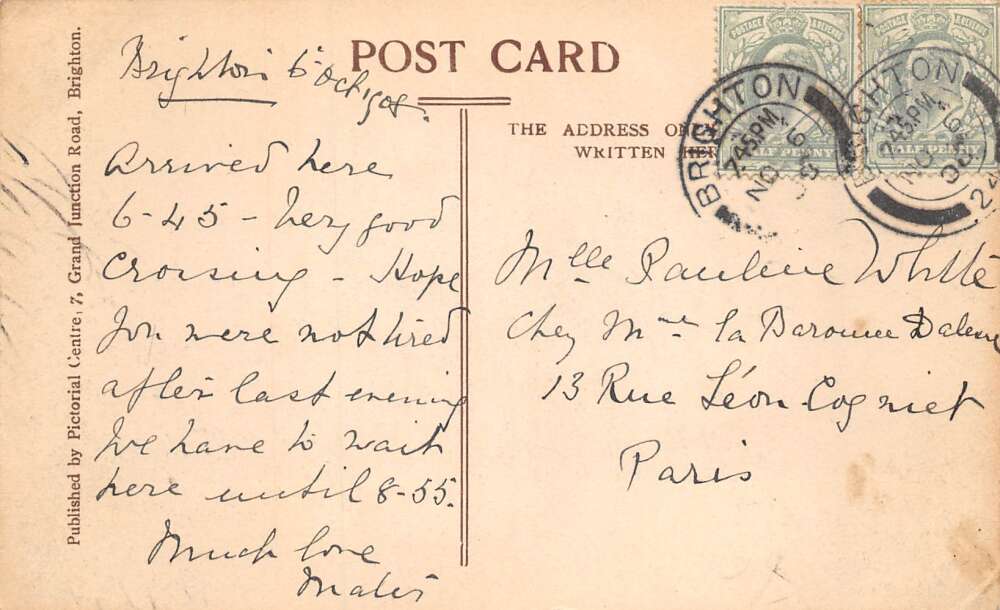 POST CARD
THE ADDRESS ON
WRITTEN HER
Published by Pictorial Centre, 7, Grand Junction Road, Brighton.
Brighton 6 Oct 1908.
Arrived here
6-45 - Very good
Crossing - Hope
you were not tired
after last evening
We have to wait
here until 8-55.
Much love
POSTAGE & REVENUE
HALF PENNY
BRIGHTON
7.45PM
NO 6
08
POSTAGE & REVENUE
HALF PENNY
BRIGHTON
7.45PM
NO 6
08
Mlle Pauline White
Chez Mme la Baronne
13 Rue Léon Cogniet
Paris